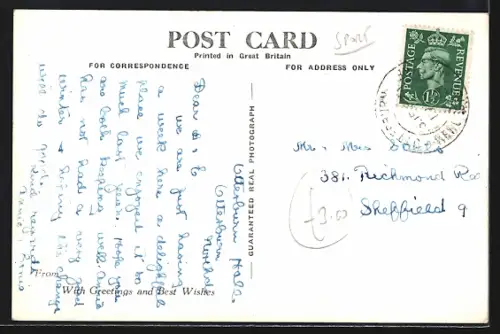 POST CARD
SPORT
Printed in Great Britain
FOR CORRESPONDENCE
FOR ADDRESS ONLY
POSTAGE
REVENUE
1½D
Otterburn Hall.
Otterburn
Northd.
Dear A & C
We are just having
a week here a delightful
place we enjoyed it so
much last year. Hope you
are both keeping well. Annie
has not had a very good
winter & hoping this change
will do good.
Kind regards
Annie,
From
With Greetings and Best Wishes
GUARANTEED REAL PHOTOGRAPH
Mr. Mrs
381. Richmond Rd
Sheffield 9
£3.00